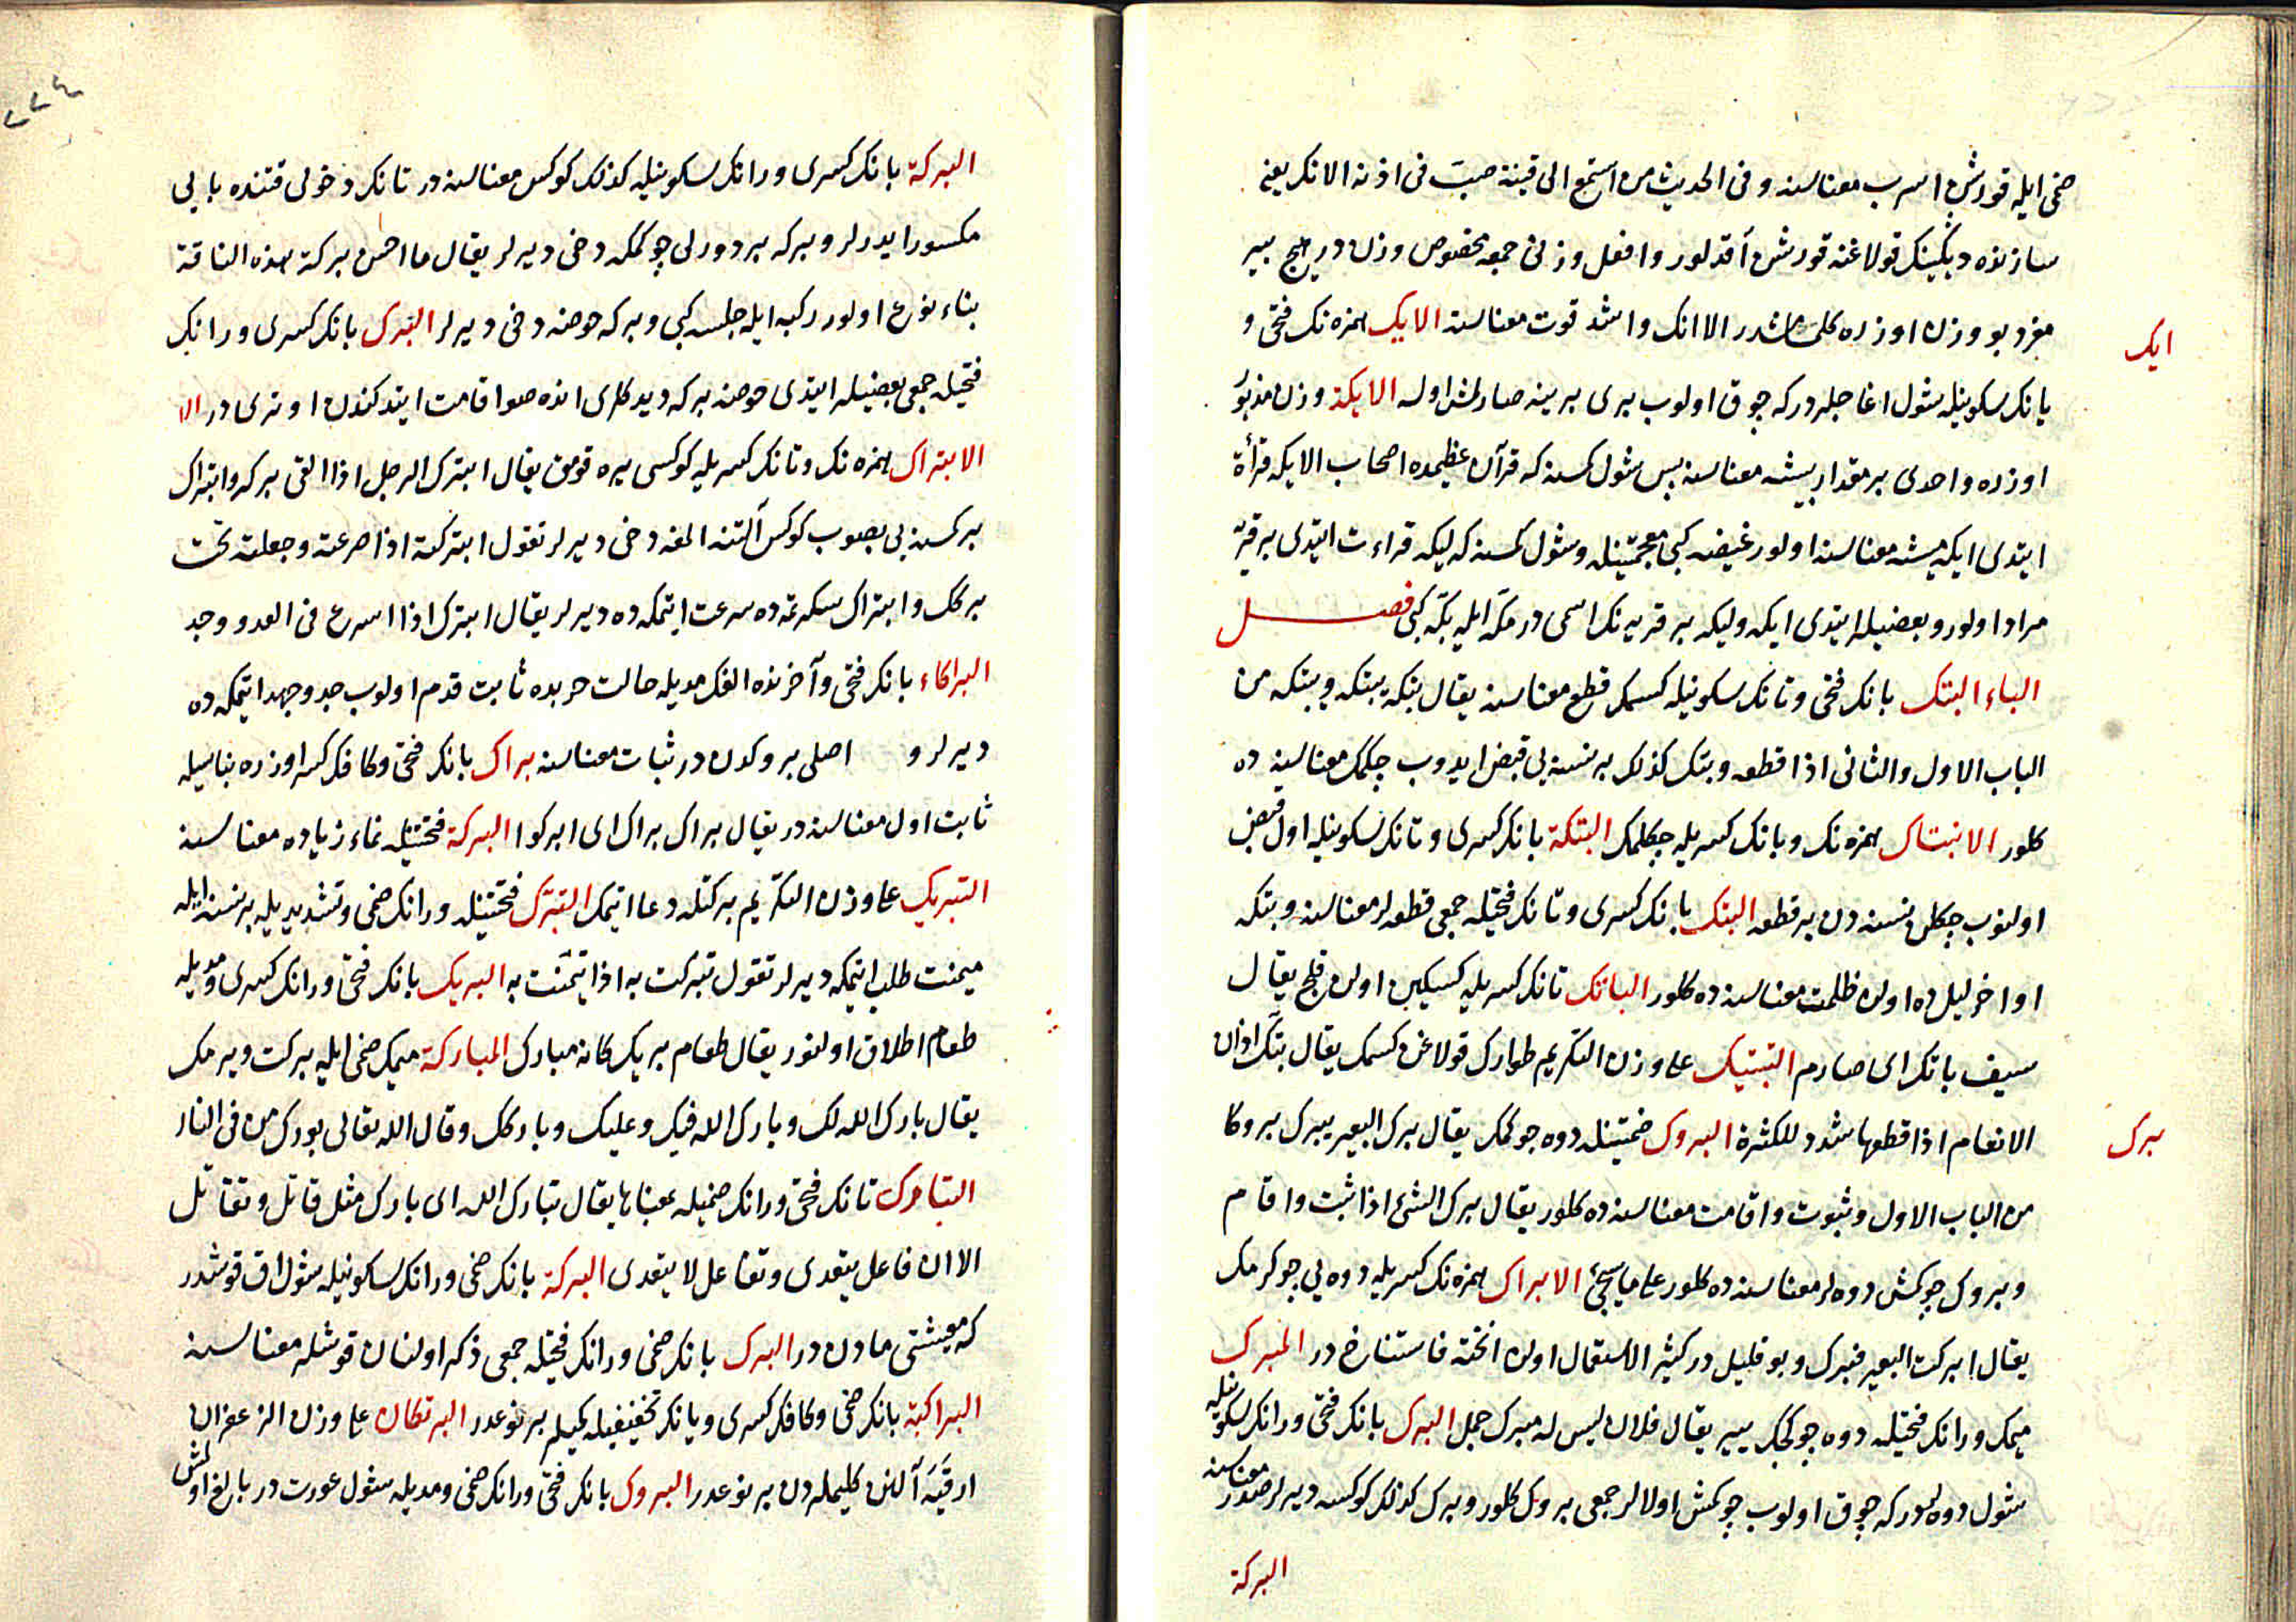 ضمی ایله قورشن اسرب معناسنه وفی الحدیث من استمع الی قینة صبّ فی اذنه الانک یعنی
سازنده دیگینک قولاغنه قورشن آقدلور وافعل وزنی جمعه مخصوص وزن در هیچ بیر
مفرد بو وزن اوزره کلمامشدر الا انک واشد قوت معناسنه الایک همزه نک فتحی و
ایک
یانک سکونیله شول اغاجلردر که چوق اولوب بری برینه صارلمش اوله الایکة وزن مذبور
اوزره واحدی بر مقدار بیشه معناسنه پس شول کمسنه که قرآن عظیمده اصحاب الایکه قرأة
ایتدی ایکه میشه معناسنه اولور غیضه کبی معجمتینله وشول کمسنه که لیکه قراءت ایتدی بر قریه
مراد اولور وبعضیلر ایتدی ایکه ولیکه بر قریه نک اسمی در مکّه ایله بکّه کبی فصل
الباء البتک بانک فتحی وتانک سکونیله کسمک قطع معناسنه یقال بتکه یبتکه ویبتکه من
الباب الاول والثانی اذا قطعه وبتک کذلک بر نسنه یی قبض ایدوب چکمک معناسنه ده
کلور الانبتاک همزه نک وبانک کسریله چکلمک البتکة بانک کسری وتانک سکونیله اول قبض
اولنوب چکلن نسنه دن بر قطعه البتک بانک کسری وتانک فتحیله جمعی قطعه لر معناسنه وبتکه
اواخر لیل ده اولن ظلمت معناسنه ده کلور الباتک تانک کسریله کسیکین اولن قلج یقال
سیف باتک ای صارم التبتیک علی وزن التکریم طوارک قولاغن کسمک یقال بتّک اذان
الانعام اذا قطعها شدد للکثرة البروک ضمتینله دوه چوکمک یقال برک البعیر یبرک بروکا
برک
من الباب الاول وثبوت واقامت معناسنه ده کلور یقال برک الشئ اذا ثبت واقام
وبروک چوکمش دوه لر معناسنه ده کلور علی ما سیجئ الابراک همزه نک کسریله دوه یی چوکرمک
یقال ابرکت البعیر فبرک وبو قلیل در کثیر الاستعمال اولن انخته فاستناخ در المبرک
میمک ورانک فتحیله دوه چوکجک ییر یقال فلان لیس له مبرک جمل البرک بانک فتحی ورانک سکونیله
شول دوه لردر که چوق اولوب چوکمش اولالر جمعی بروک کلور وبرک کذلک کوکسه دیرلر صدر معناسنه
البرکة
البرکة بانک کسری ورانک سکونیله کذلک کوکس معناسنه در تانک دخولی فتنده بایی
مکسور ایدرلر وبرکه بر دورلی چوکمکه دخی دیرلر یقال ما احسن برکة هذه الناقة
بناء نوع اولور رکبه ایله جلسه کبی وبرکه حوضه دخی دیرلر البرک بانک کسری ورانک
فتحیله جمعی بعضیلر ایتدی حوضه برکه دیدکلری انده صو اقامت ایتدکندن اوتری در الا
الابتراک همزه نک وتانک کسریله کوکسی یره قومق یقال ابترک الرجل اذا القی برکه وابتراک
بر کمسنه یی بصوب کوکس آلتنه المغه دخی دیرلر تقول ابترکته اذا صرعته وجعلته تحت
برکک وابتراک سکرتمه ده سرعت ایتمکه ده دیرلر یقال ابترک اذا اسرع فی العدو وجد
البراکاء بانک فتحی وآخرنده الفک مدیله حالت حربده ثابت قدم اولوب جد وجهد ایتمکه ده
دیرلر و اصلی بروکدن در ثبات معناسنه براک بانک فتحی وکافک کسر اوزره بناسیله
ثابت اول معناسنه در یقال براک براک ای ابرکوا البرکة فتحتینله نماء زیاده معناسنه
التبریک علی وزن التکریم برکتله دعا ایتمک التبرک فتحتینله ورانک ضمی وتشدیدیله بر نسنه ایله
میمنت طلب ایتمکه دیرلر تقول تبرکت به اذا تیمّنت به البریک بانک فتحی ورانک کسری ومدیله
طعام اطلاق اولنور یقال طعام بریک کانه مبارک المبارکة میمک ضمی ایله برکت ویرمک
یقال بارک الله لک وبارک الله فیک وعلیک وبارکک وقال الله تعالی بورک من فی النار
التبارک تانک فتحی ورانک ضمیله بمعناها یقال تبارک الله ای بارک مثل قاتل وتقاتل
الا ان فاعل یتعدی وتفاعل لا یتعدی البرکة بانک ضمی ورانک سکونیله شول اق قوشدر
که معیشتی مادن در البرک بانک ضمی ورانک فتحیله جمعی ذکر اولنان قوشلر معناسنه
البراکیة بانک ضمی وکافک کسری ویانک تخفیفیله کمیلر بر نوعدر البرتکان علی وزن الزعفران
البروک بانک فتحی ورانک ضمی ومدیله شول عورت در بالغ اولمش